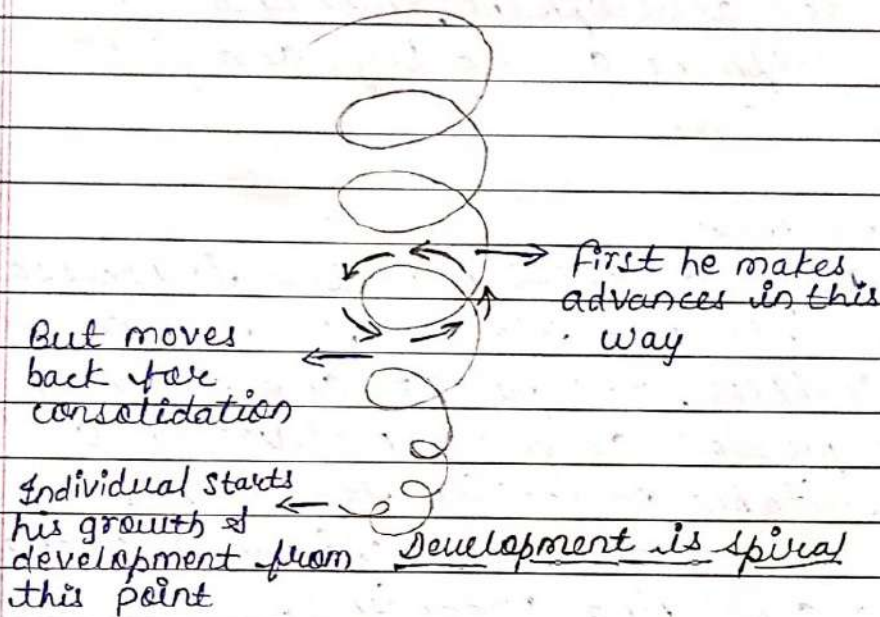 First he makes
advances in this
way
But moves
back for
consolidation
Individual starts
his growth &
development from
this point
Development is spiral